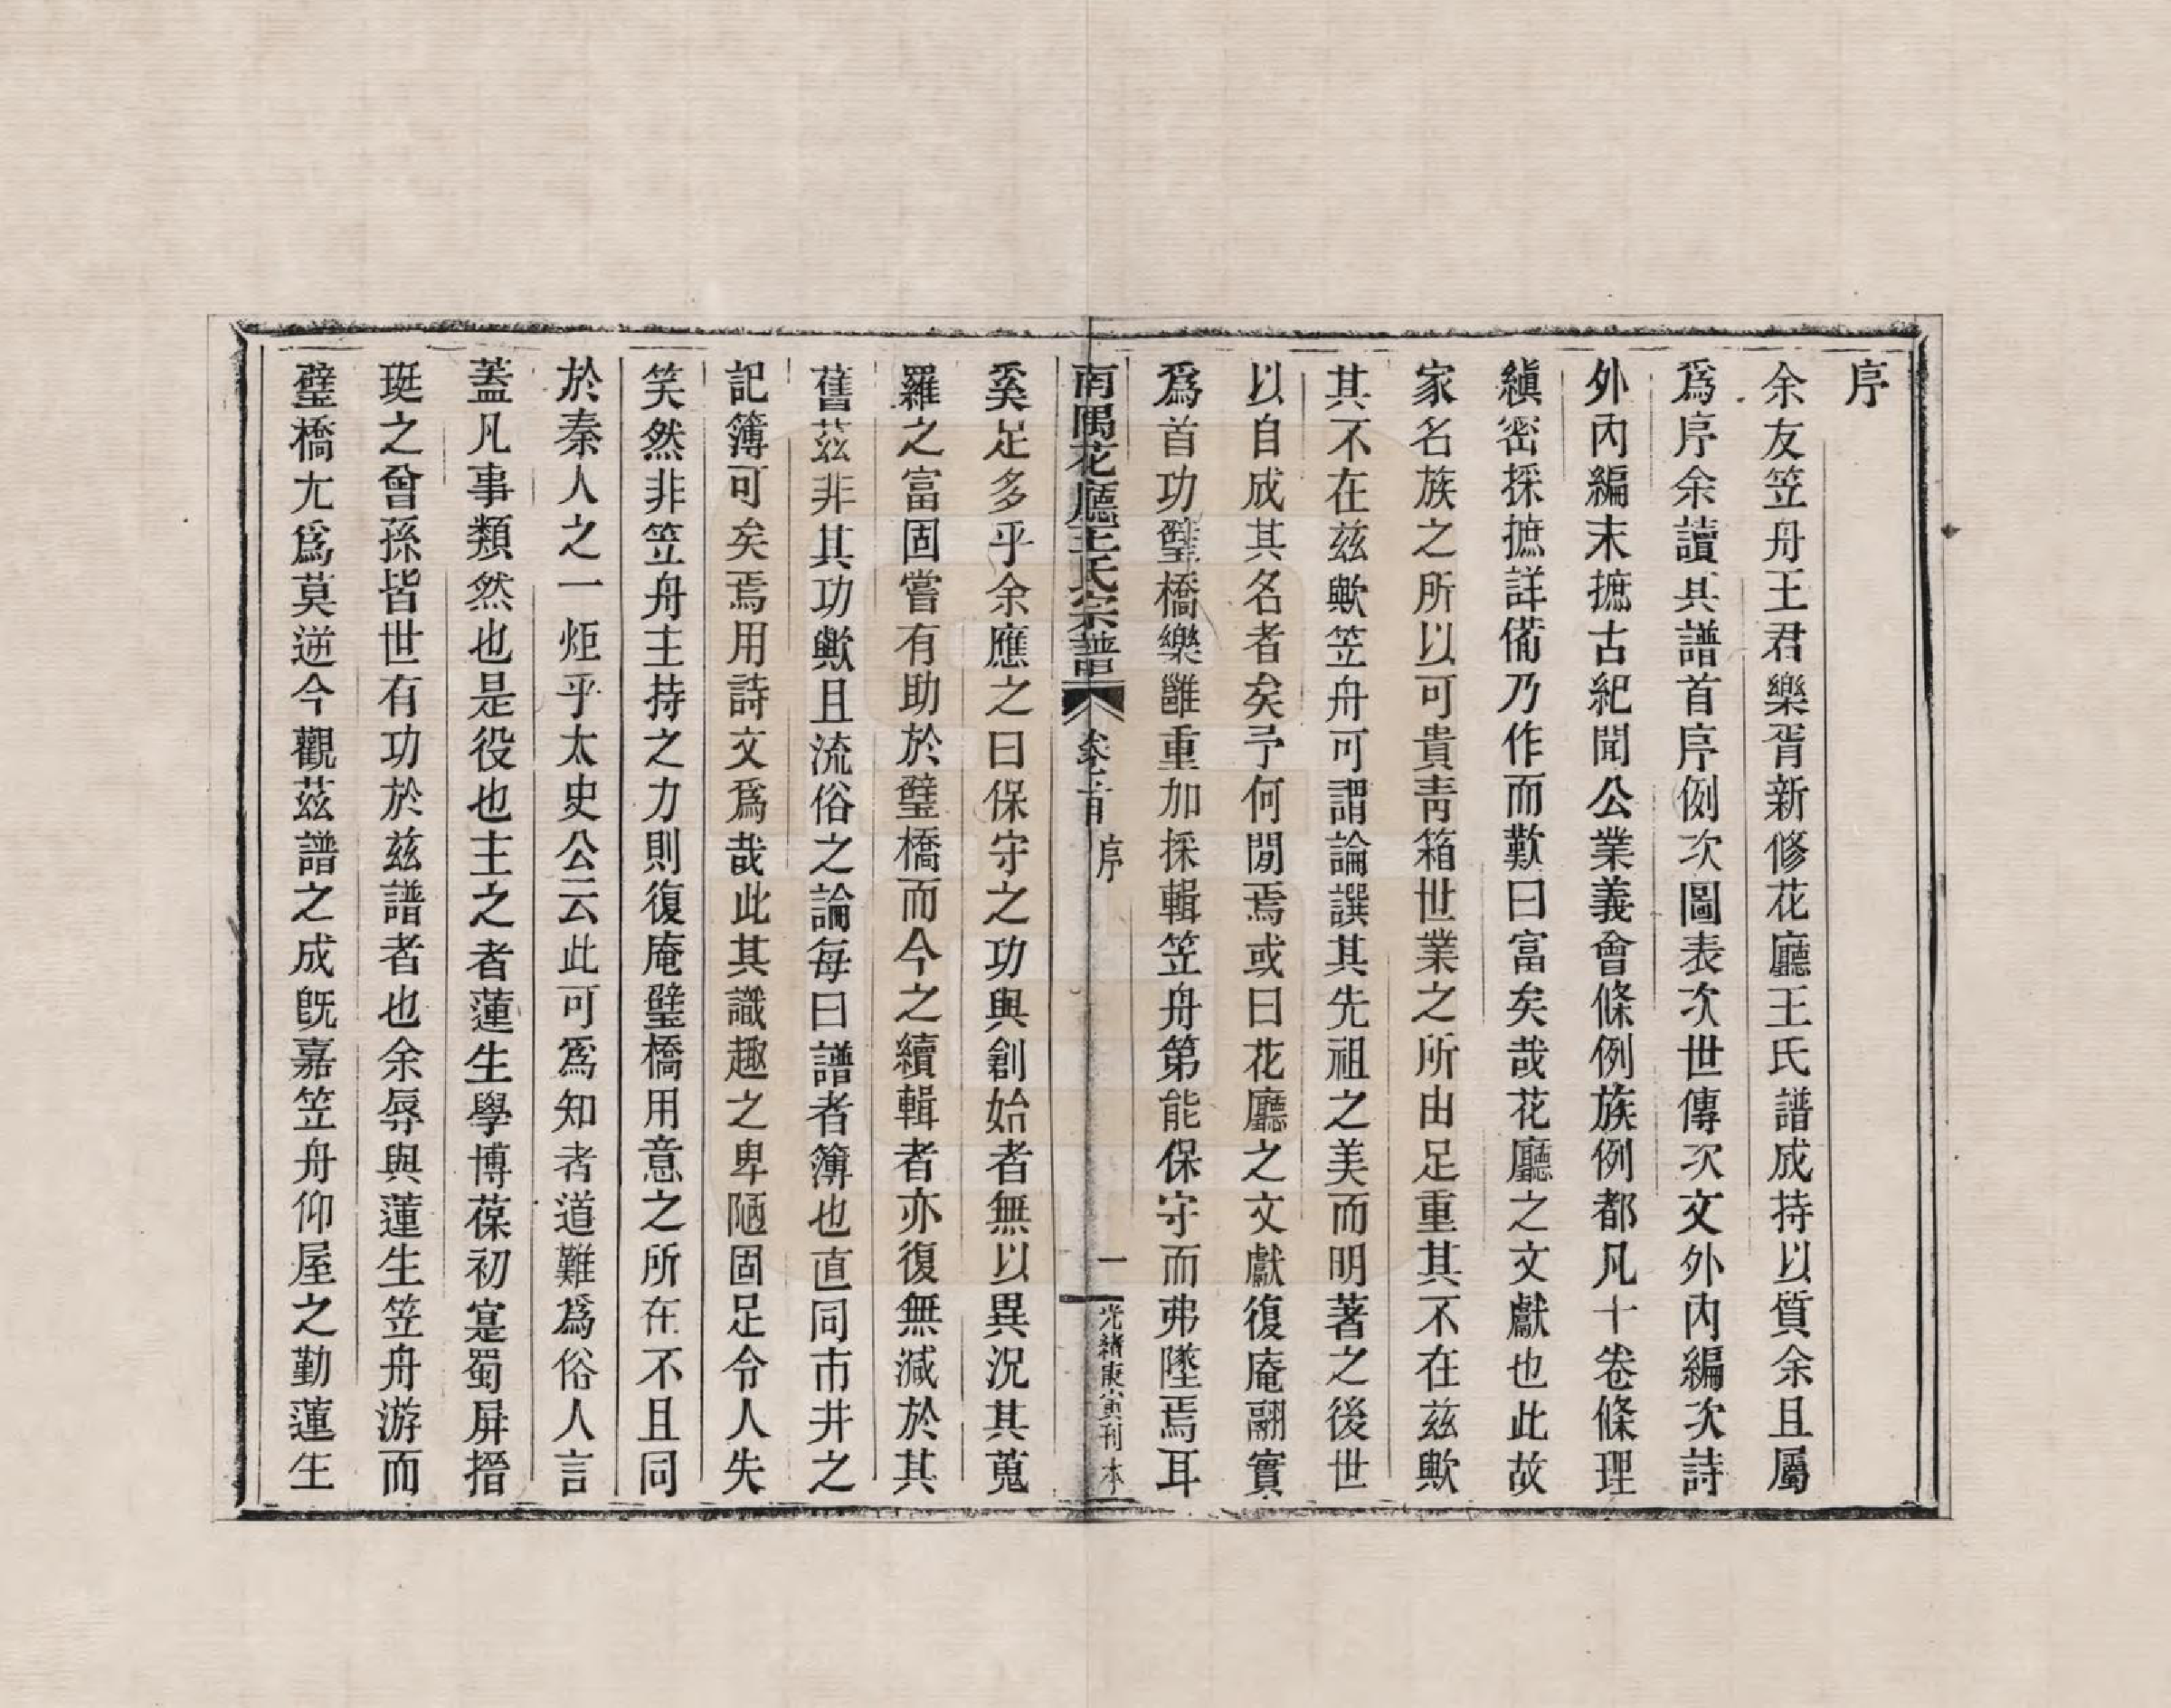 序
余友笠舟王君樂胥新修花廳王氏譜成持以質余且屬
爲序余讀其譜首序例次圖表次世傳次文外內編次詩
外內編末摭古紀聞公業義會條例族例都凡十卷條理
縝密採摭詳備乃作而歎曰富矣哉花廳之文獻也此故
家名族之所以可貴靑箱世業之所由足重其不在茲歟
其不在茲歟笠舟可謂論譔其先祖之美而明著之後世
以自成其名者矣予何閒焉或曰花廳之文獻復庵翮實
爲首功璧橋樂雝重加採輯笠舟第能保守而弗墜焉耳
南隅花廳王氏宗譜 卷首 序 一 光緒庚寅刊本
奚足多乎余應之曰保守之功與創始者無以異況其蒐
羅之富固嘗有助於璧橋而今之續輯者亦復無減於其
舊茲非其功歟且流俗之論每曰譜者簿也直同市井之
記簿可矣焉用詩文爲哉此其識趣之卑陋固足令人失
笑然非笠舟主持之力則復庵璧橋用意之所在不且同
於秦人之一炬乎太史公云此可爲知者道難爲俗人言
蓋凡事類然也是役也主之者蓮生學博葆初寔蜀屏搢
珽之曾孫皆世有功於茲譜者也余辱與蓮生笠舟游而
璧橋尢爲莫逆今觀茲譜之成旣嘉笠舟仰屋之勤蓮生